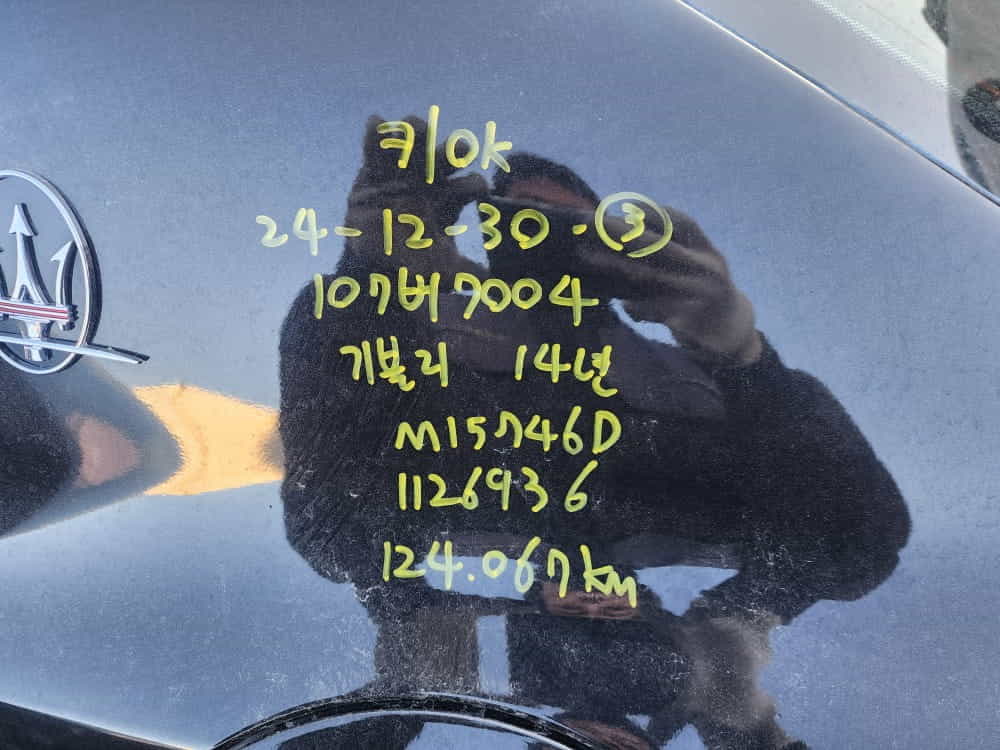 키/OK
24-12-30-③
107버7004
기블리 14년
M15746D
1126936
124.067km